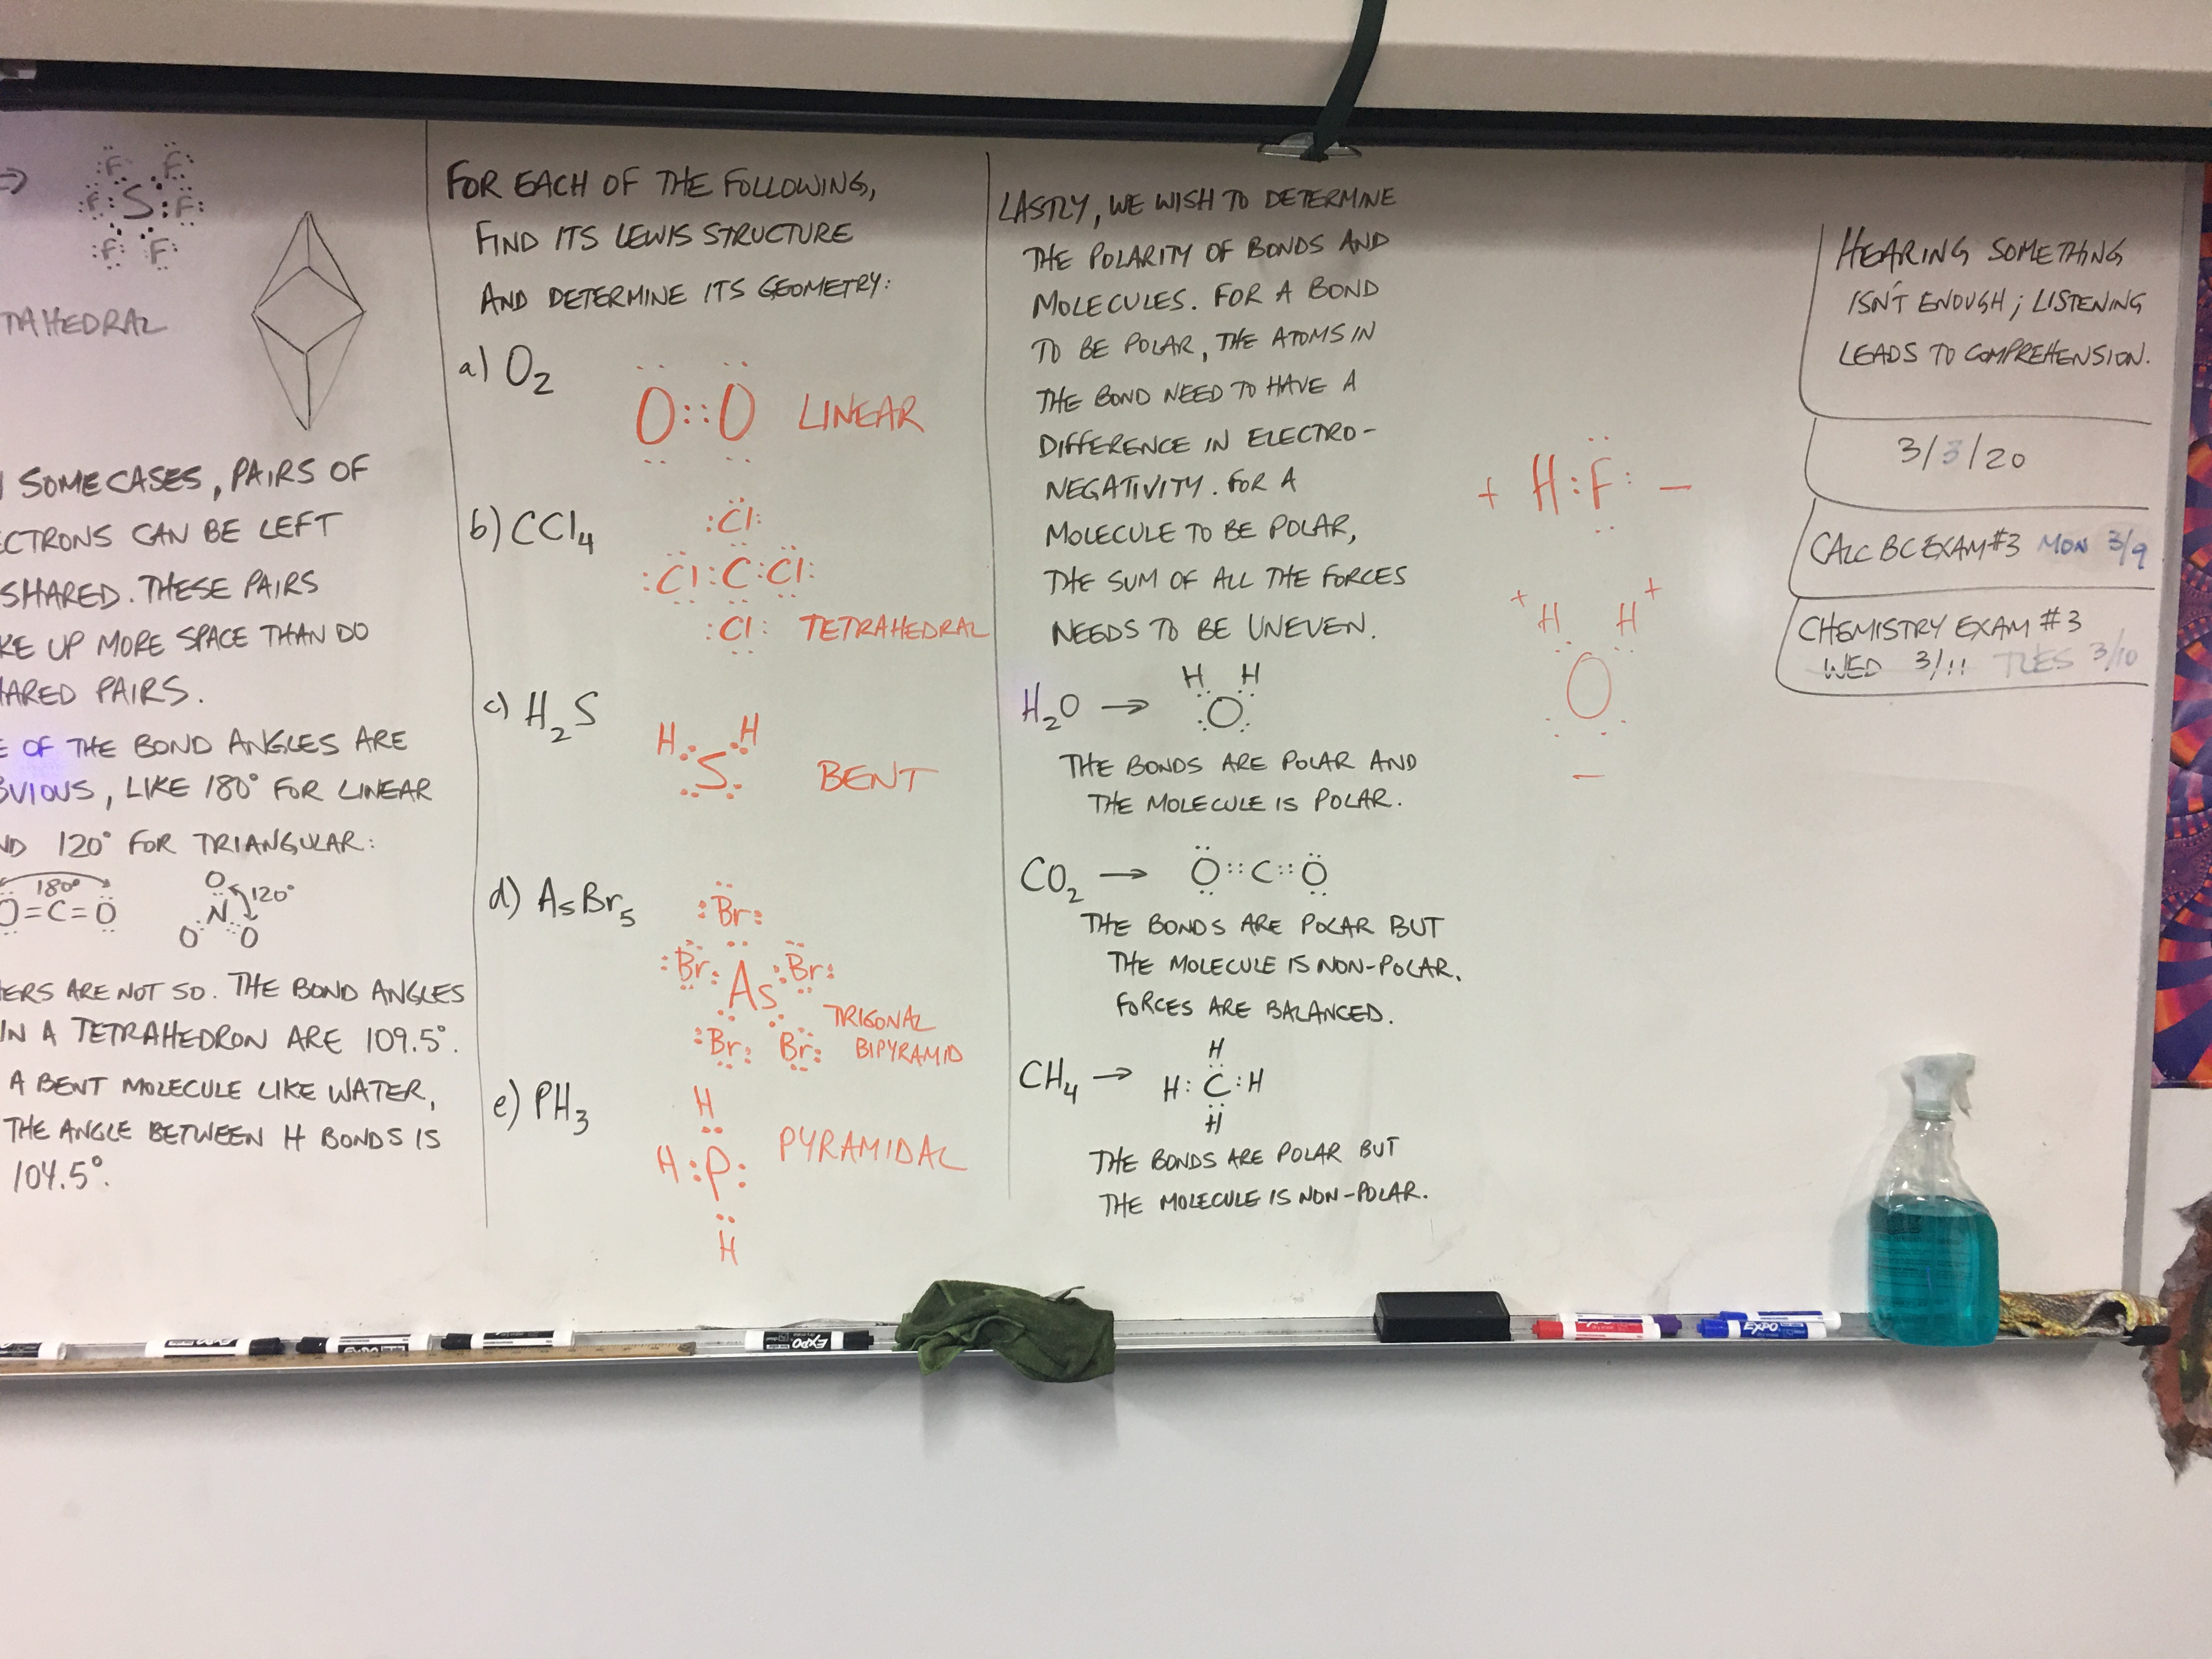 TAHEDRAL
SOME CASES, PAIRS OF
ECTRONS CAN BE LEFT
SHARED. THESE PAIRS
KE UP MORE SPACE THAN DO
HARED PAIRS.
E OF THE BOND ANGLES ARE
BVIOUS, LIKE 180° FOR LINEAR
ND 120° FOR TRIANGULAR:
180°
O=C=O
O
120°
N
O O
ERS ARE NOT SO. THE BOND ANGLES
IN A TETRAHEDRON ARE 109.5°.
A BENT MOLECULE LIKE WATER,
THE ANGLE BETWEEN H BONDS IS
104.5°.
F F
F S F
F F
FOR EACH OF THE FOLLOWING,
FIND ITS LEWIS STRUCTURE
AND DETERMINE ITS GEOMETRY:
a) O2
O::O LINEAR
b) CCl4
:Cl:
:Cl:C:Cl:
:Cl: TETRAHEDRAL
c) H2S
H H
S
BENT
d) AsBr5
:Br:
:Br. As Br:
:Br: Br:
TRIGONAL
BIPYRAMID
e) PH3
H
H:P:
H
PYRAMIDAL
LASTLY, WE WISH TO DETERMINE
THE POLARITY OF BONDS AND
MOLECULES. FOR A BOND
TO BE POLAR, THE ATOMS IN
THE BOND NEED TO HAVE A
DIFFERENCE IN ELECTRO-
NEGATIVITY. FOR A
MOLECULE TO BE POLAR,
THE SUM OF ALL THE FORCES
NEEDS TO BE UNEVEN.
H2O → H H
:O:
THE BONDS ARE POLAR AND
THE MOLECULE IS POLAR.
CO2 → O::C::O
THE BONDS ARE POLAR BUT
THE MOLECULE IS NON-POLAR.
FORCES ARE BALANCED.
CH4 →
H
H:C:H
H
THE BONDS ARE POLAR BUT
THE MOLECULE IS NON-POLAR.
+ H:F: −
+ H H +
O
−
HEARING SOMETHING
ISN'T ENOUGH; LISTENING
LEADS TO COMPREHENSION.
3/3/20
CALC BC EXAM #3 MON 3/9
CHEMISTRY EXAM #3
WED 3/11 TUES 3/10
EXPO
EXPO
EXPO